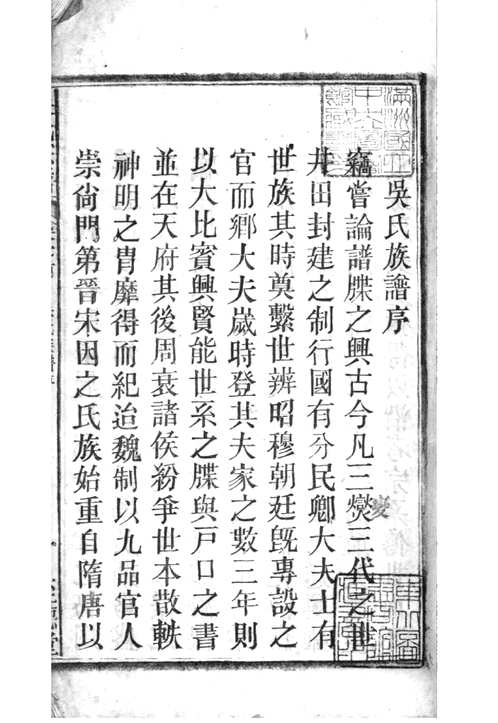 吳氏族譜序
竊嘗論譜牒之興古今凡三燮三代之世
變
井田封建之制行國有分民卿大夫士有
世族其時奠繫世辨昭穆朝廷旣專設之
官而鄉大夫歲時登其夫家之數三年則
以大比賓興賢能世系之牒與戸口之書
並在天府其後周衰諸侯紛爭世本散軼
神明之胄靡得而紀迨魏制以九品官人
崇尙門第晉宋因之氏族始重自隋唐以